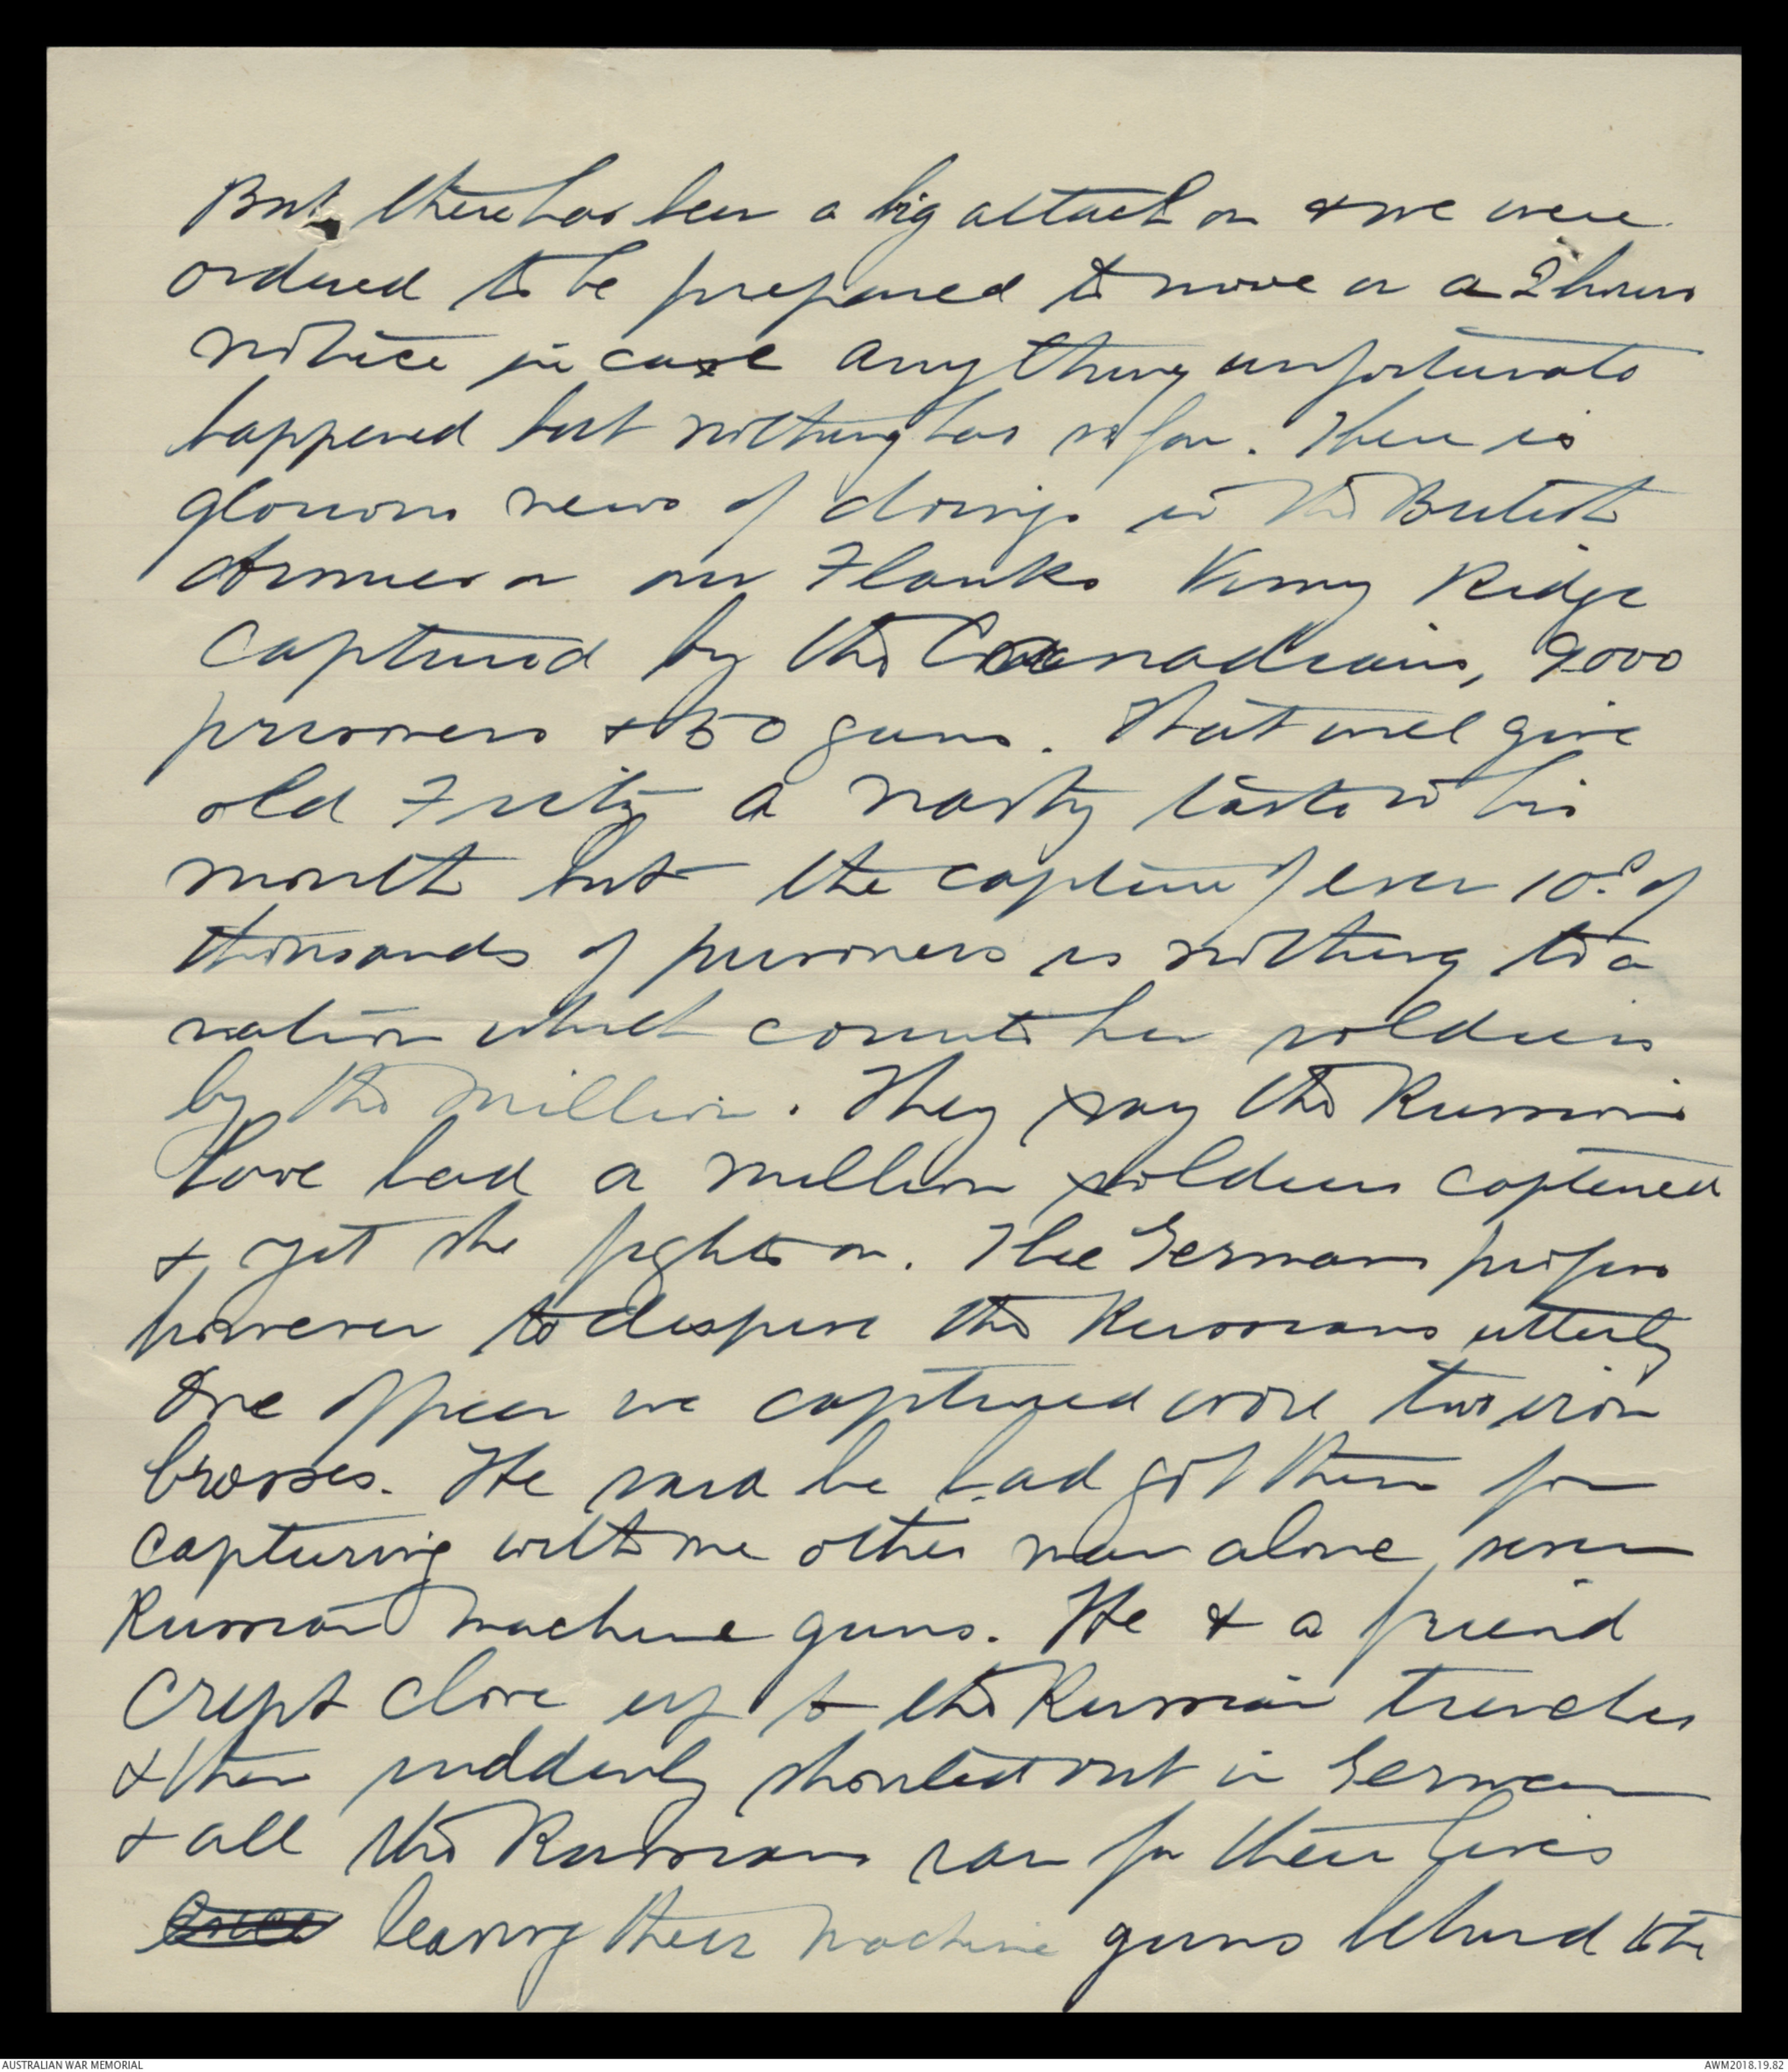 But there has been a big attack on & we were
ordered to be prepared to move on a 2 hours
notice in case anything unfortunate
happened but nothing has so far. There is
glorious news of doings in the British
Armies on our Flanks Vimy Ridge
captured by the Canadians, 9000
prisoners & 50 guns. That will give
old Fritz a nasty taste in his
mouth but the capture of even 10s of
thousands of prisoners is nothing to a
nation which counts her soldiers
by the million. They say the Russians
have had a million soldiers captured
& yet she fights on. The Germans profess
however to despise the Russians utterly
One officer we captured wore two iron
crosses. He said he had got them for
capturing with one other man alone, seven
Russian machine guns. He & a friend
crept close up to the Russian trenches
& then suddenly shouted out in German
& all the Russians ran for their lives
leaving their machine guns behind the
AUSTRALIAN WAR MEMORIAL
AWM2018.19.82